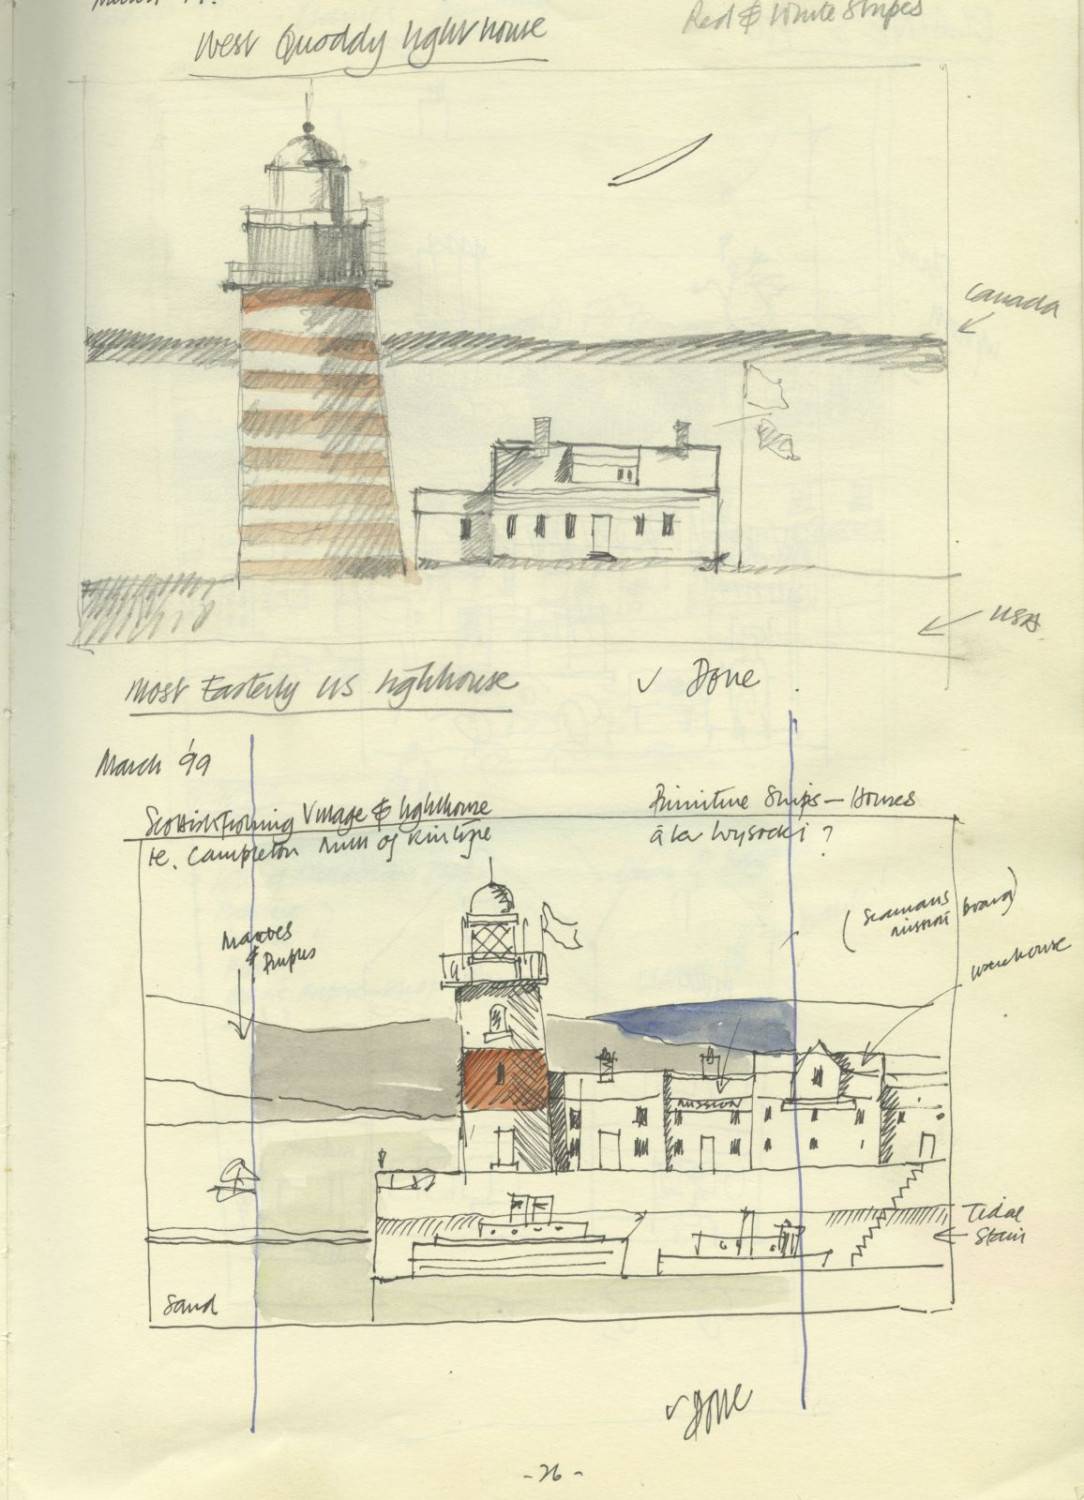 March '99.
West Quoddy lighthouse
Red & White Stripes
Canada
USA
Most Easterly US lighthouse
✓ Done
March '99
Scottish Fishing Village & lighthouse
ie. Campleton Mull of Kintyre
Primitive Ships - Houses
à la Wysocki ?
Mauves
& Purples
(Seamans
mission
warehouse
MISSION
Tidal
Stair
Sand
✓ Done
- 26 -